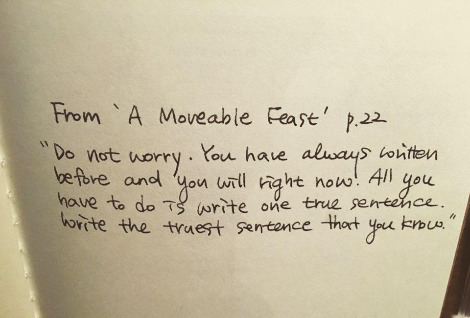 From 'A Moveable Feast' p.22
"Do not worry. You have always written
before and you will right now. All you
have to do is write one true sentence.
Write the truest sentence that you know."